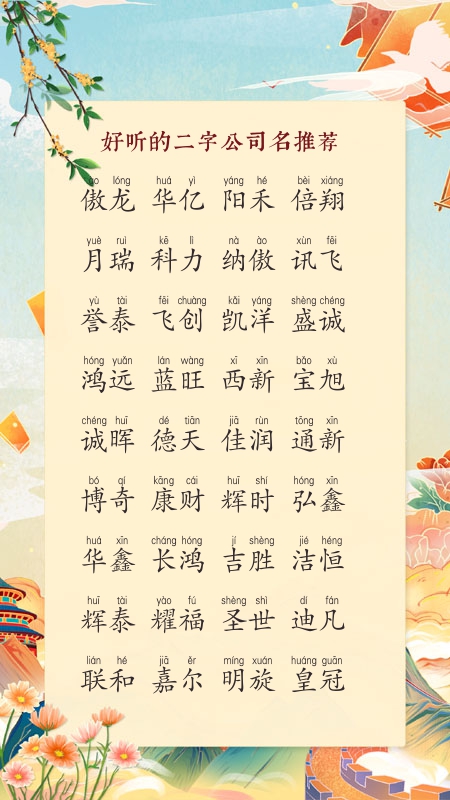 好听的二字公司名推荐
ào lóng huá yì yáng hé bèi xiáng
傲龙 华亿 阳禾 倍翔
yuè ruì kē lì nà ào xùn fēi
月瑞 科力 纳傲 讯飞
yù tài fēi chuàng kǎi yáng shèng chéng
誉泰 飞创 凯洋 盛诚
hóng yuǎn lán wàng xī xīn bǎo xù
鸿远 蓝旺 西新 宝旭
chéng huī dé tiān jiā rùn tōng xīn
诚晖 德天 佳润 通新
bó qí kāng cái huī shí hóng xīn
博奇 康财 辉时 弘鑫
huá xīn cháng hóng jí shèng jié héng
华鑫 长鸿 吉胜 洁恒
huī tài yào fú shèng shì dí fán
辉泰 耀福 圣世 迪凡
lián hé jiā ěr míng xuán huáng guān
联和 嘉尔 明旋 皇冠